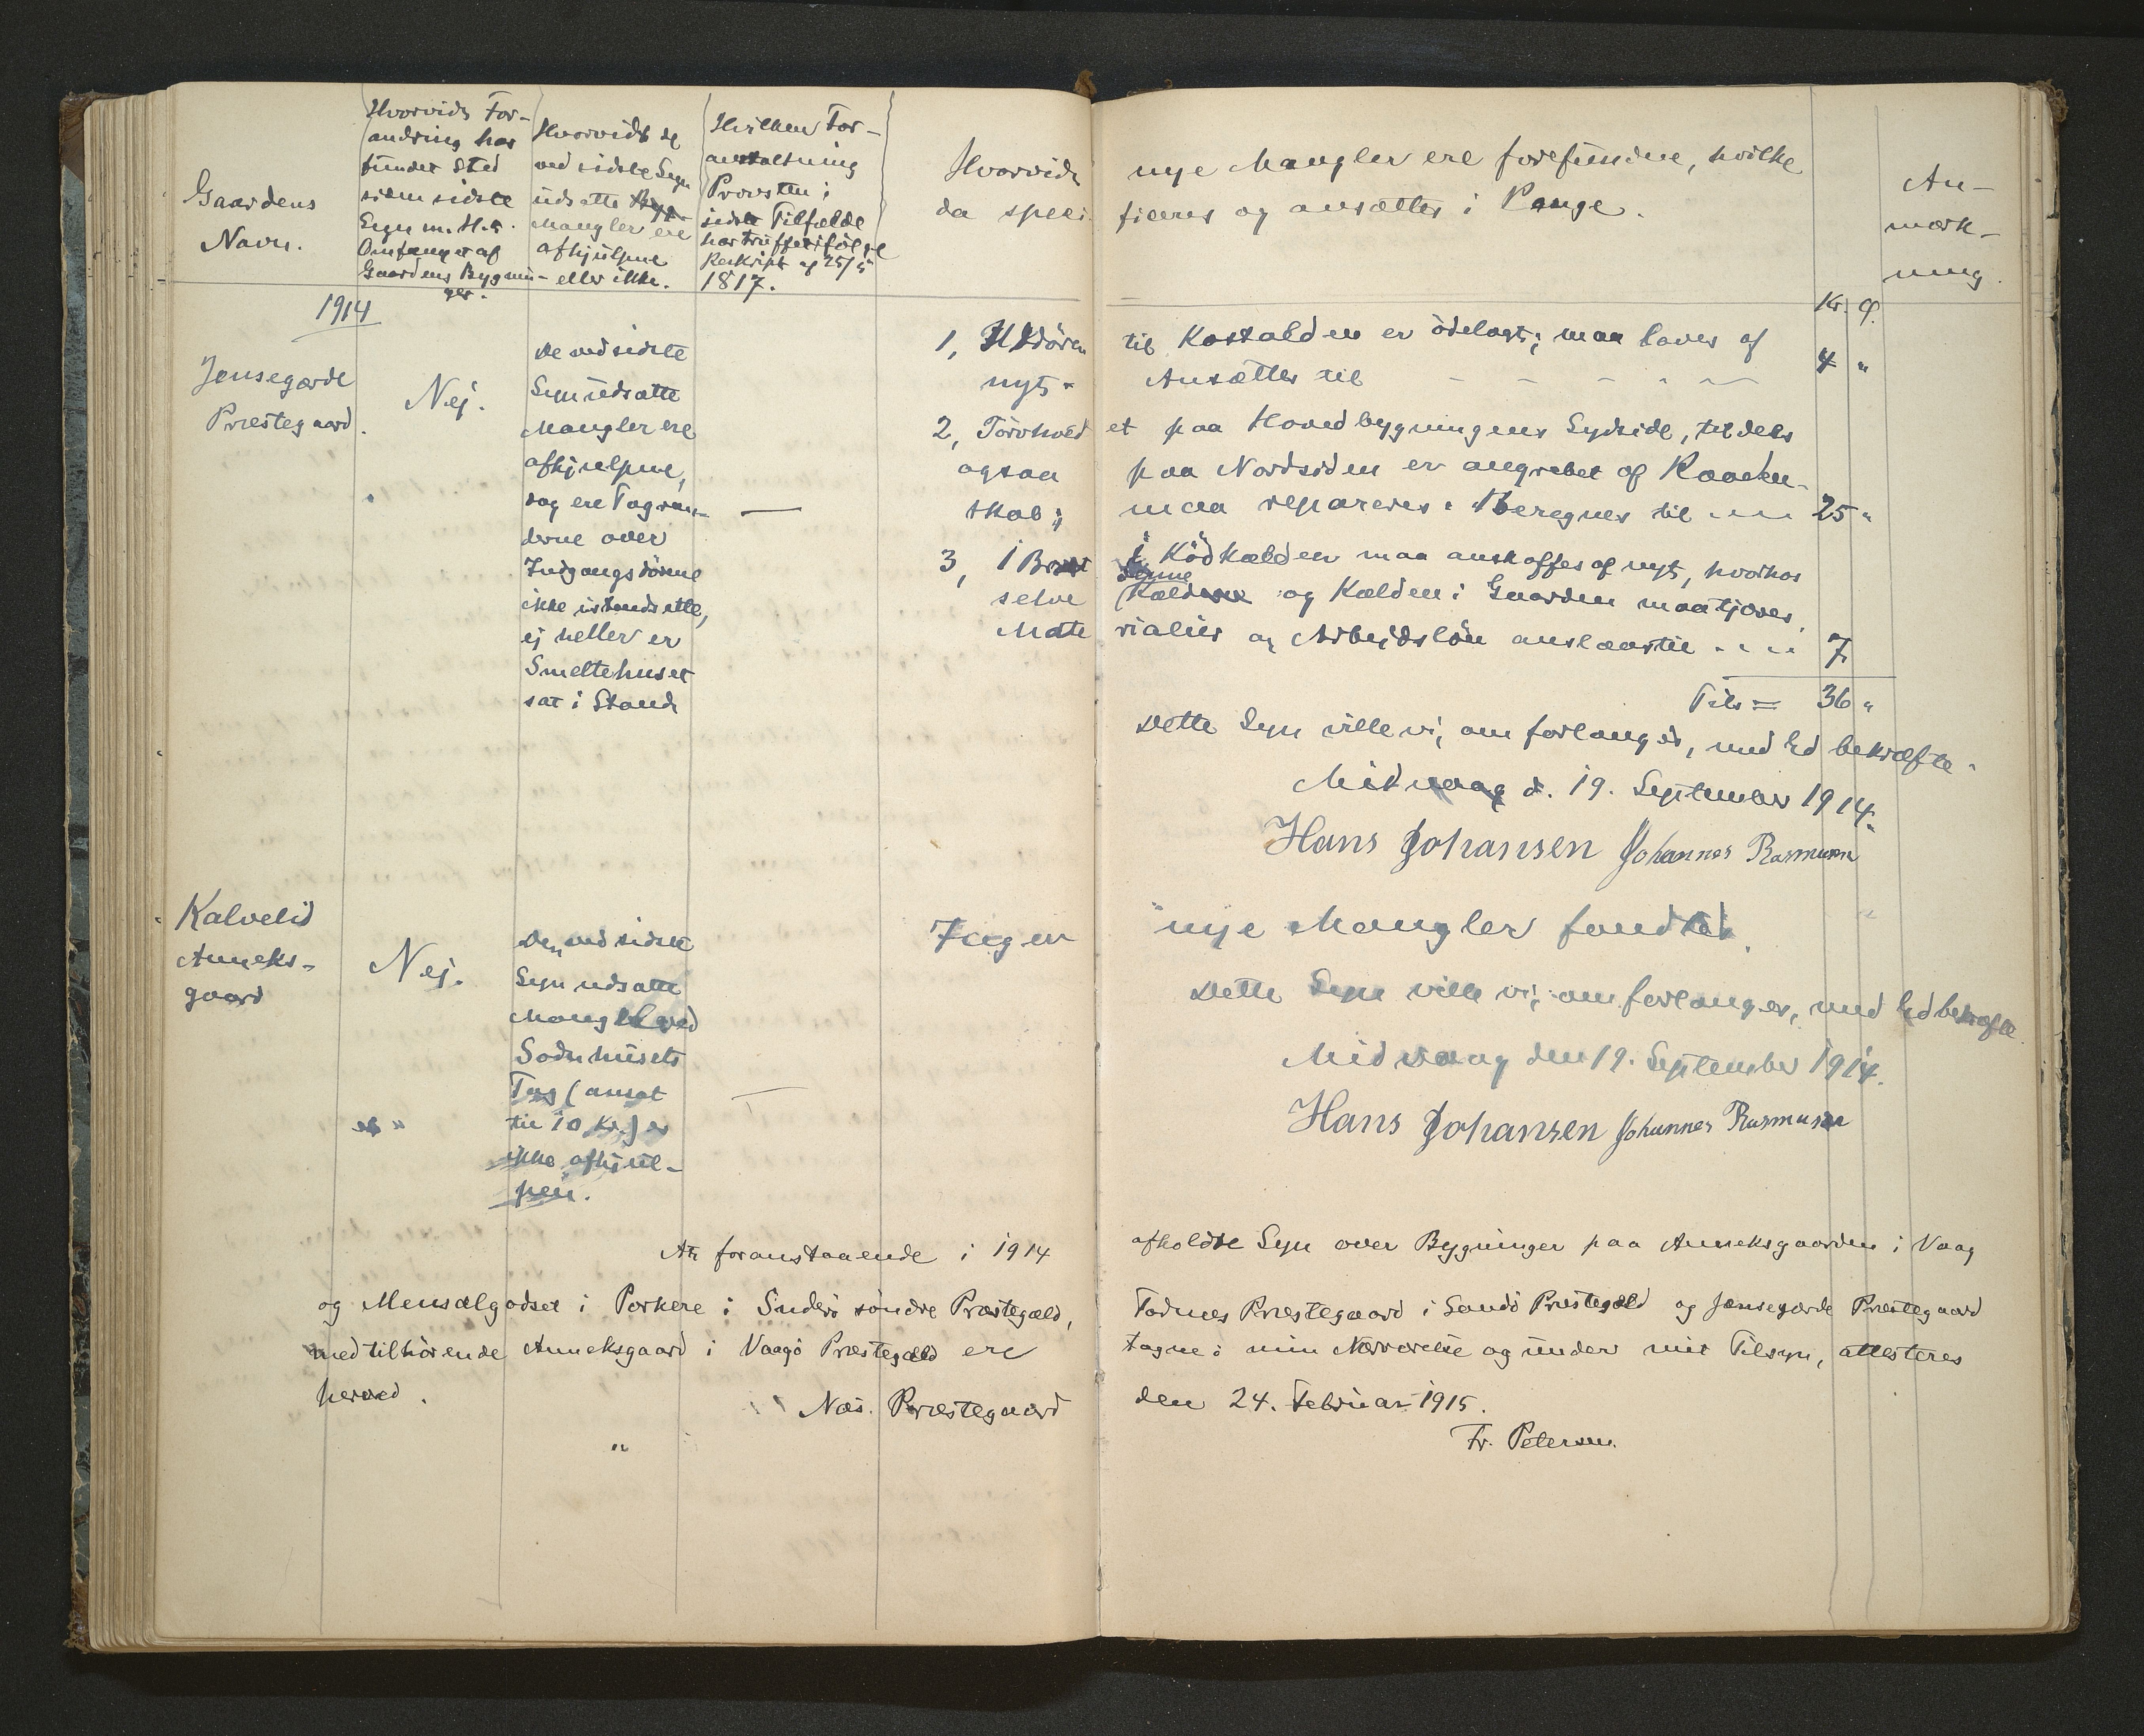 Gaardens
Navn.
Hvorvidt For-
andring har
fundet Sted
siden sidste
Syn m. H. t.
Omfanget af
Gaardens Bygnin-
ger.
Hvorvidt de
ved sidste Syn
udsatte
Mangler ere
afhjulpne
eller ikke.
Hvilken For-
anstaltning
Provsten i
sidste Tilfælde
har truffet ifølge
Reskript af 25/
1817.
Hvorvidt nye Mangler ere forefundne, hvilke
da specificeres og ansættes i Penge.
An-
mærk-
ning.
Kr. Ø.
1914
Jensegærde
Præstegaard.
Nej.
De ved sidste
Syn udsatte
Mangler ere
afhjulpne,
dog ere Tagren-
derne over
Indgangsdörene
ikke istandsatte,
ej heller er
Smeltehuset
sat i Stand
—
1, Yddören til Kostalden er ödelagt; maa laves af
nyt. Ansættes til - - - - - 4 "
2, Törvhvedet paa Hovedbygningens Sydside, tildels
ogsaa paa Nordsiden er angrebet af Raaden-
skab; maa repareres. Beregnes til - - - 25 "
3, i Ködkælden maa anskaffes af nyt, hvorhos
selve Kælderen og Kælden i Gaarden maa tjæres.
Materialier og Arbejdslön anslaas til - - - 7
Tils = 36 "
Dette Syn ville vi, om forlanges, med Ed bekræfte.
Midvaag d. 19. September 1914.
Hans Johansen Johannes Rasmussen
Kalvelid
Anneks-
gaard
Nej.
Den ved sidste
Syn udsatte
Mangel ved
Sodnhusets
Tag (ansat
til 10 Kr.) er
ikke afhjul-
pen.
—
Ingen nye Mangler fandtes.
Dette Syn ville vi, om forlanges, med Ed bekræfte
Midvaag den 19. September 1914.
Hans Johansen Johannes Rasmussen
At foranstaaende i 1914 afholdte Syn over Bygninger paa Anneksgaarden i Vaag
og Mensalgodset i Porkere i Suderö söndre Præstegæld, Todnes Præstegaard i Sandö Præstegæld og Jensegærde Præstegaard
med tilhörende Anneksgaard i Vaagö Præstegæld ere tagne i min Nærværelse og under mit Tilsyn, attesteres
herved.
Næs Præstegaard den 24. Februar 1915.
Fr. Petersen.